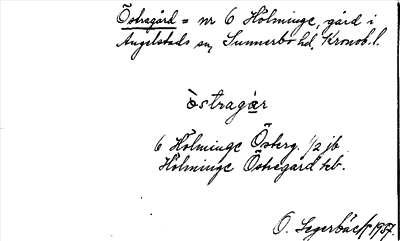 Östragård = nr 6 Hölminge, gård i
Angelstads sn, Sunnerbo hd, Kronob. l.
östragár
6 Hölminge Österg. 1/2 jb
Hölminge Östregård tcb.
O. Segerbäck 1937.